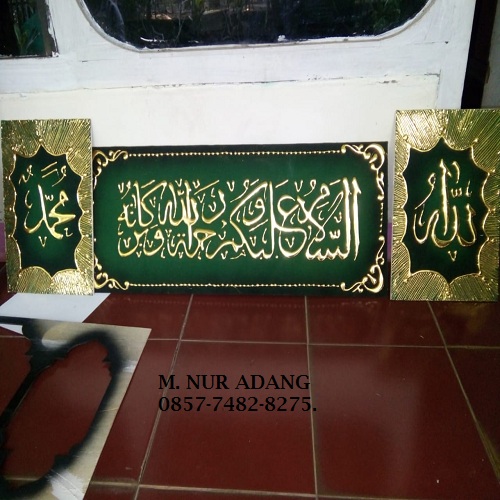 الله
السلام عليكم ورحمة الله وبركاته
محمد
M. NUR ADANG
0857-7482-8275.